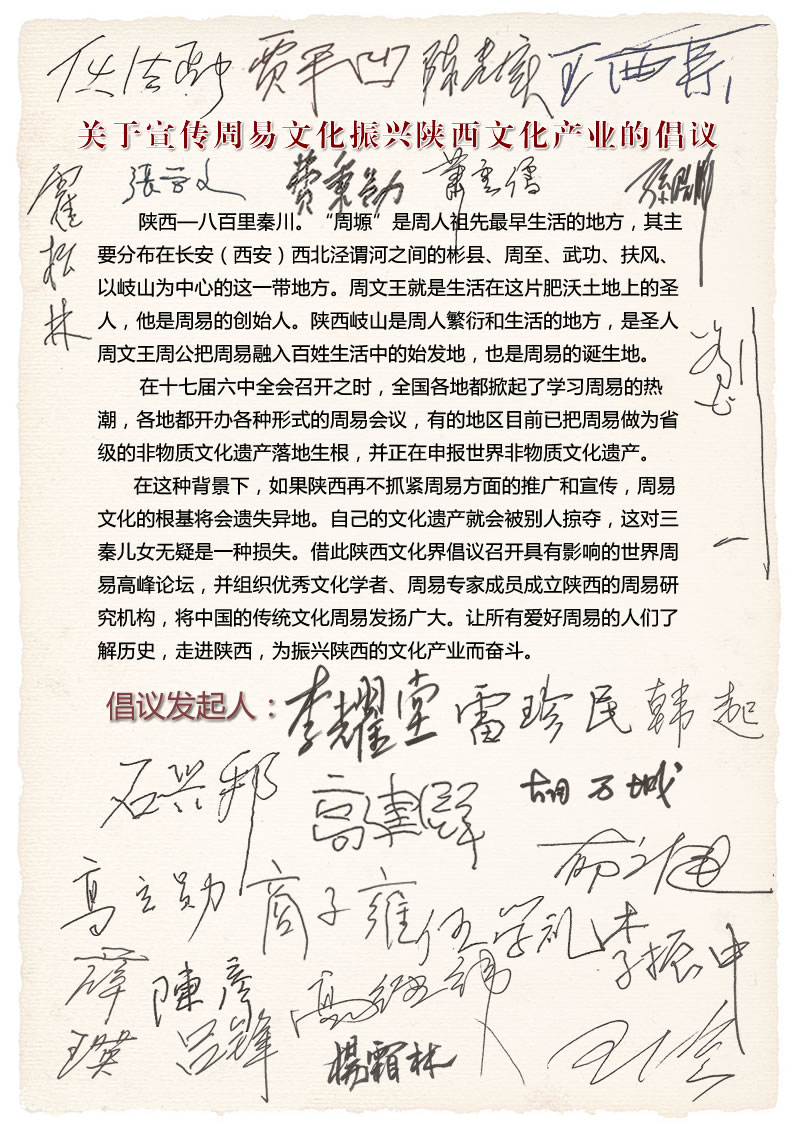 任法融 贾平凹 陈忠实 王西京
关于宣传周易文化振兴陕西文化产业的倡议
霍松林
張学文 费秉勋 萧云儒
陕西—八百里秦川。“周塬”是周人祖先最早生活的地方，其主
要分布在长安（西安）西北泾谓河之间的彬县、周至、武功、扶风、
以岐山为中心的这一带地方。周文王就是生活在这片肥沃土地上的圣
人，他是周易的创始人。陕西岐山是周人繁衍和生活的地方，是圣人
周文王周公把周易融入百姓生活中的始发地，也是周易的诞生地。
在十七届六中全会召开之时，全国各地都掀起了学习周易的热
潮，各地都开办各种形式的周易会议，有的地区目前已把周易做为省
级的非物质文化遗产落地生根，并正在申报世界非物质文化遗产。
在这种背景下，如果陕西再不抓紧周易方面的推广和宣传，周易
文化的根基将会遗失异地。自己的文化遗产就会被别人掠夺，这对三
秦儿女无疑是一种损失。借此陕西文化界倡议召开具有影响的世界周
易高峰论坛，并组织优秀文化学者、周易专家成员成立陕西的周易研
究机构，将中国的传统文化周易发扬广大。让所有爱好周易的人们了
解历史，走进陕西，为振兴陕西的文化产业而奋斗。
倡议发起人：李耀堂 雷珍民 韩起
石兴邦 高建群 胡万城
高立勋 商子雍 伍学礼 李振中
薛瑛 陳彦 吕锋
楊霜林